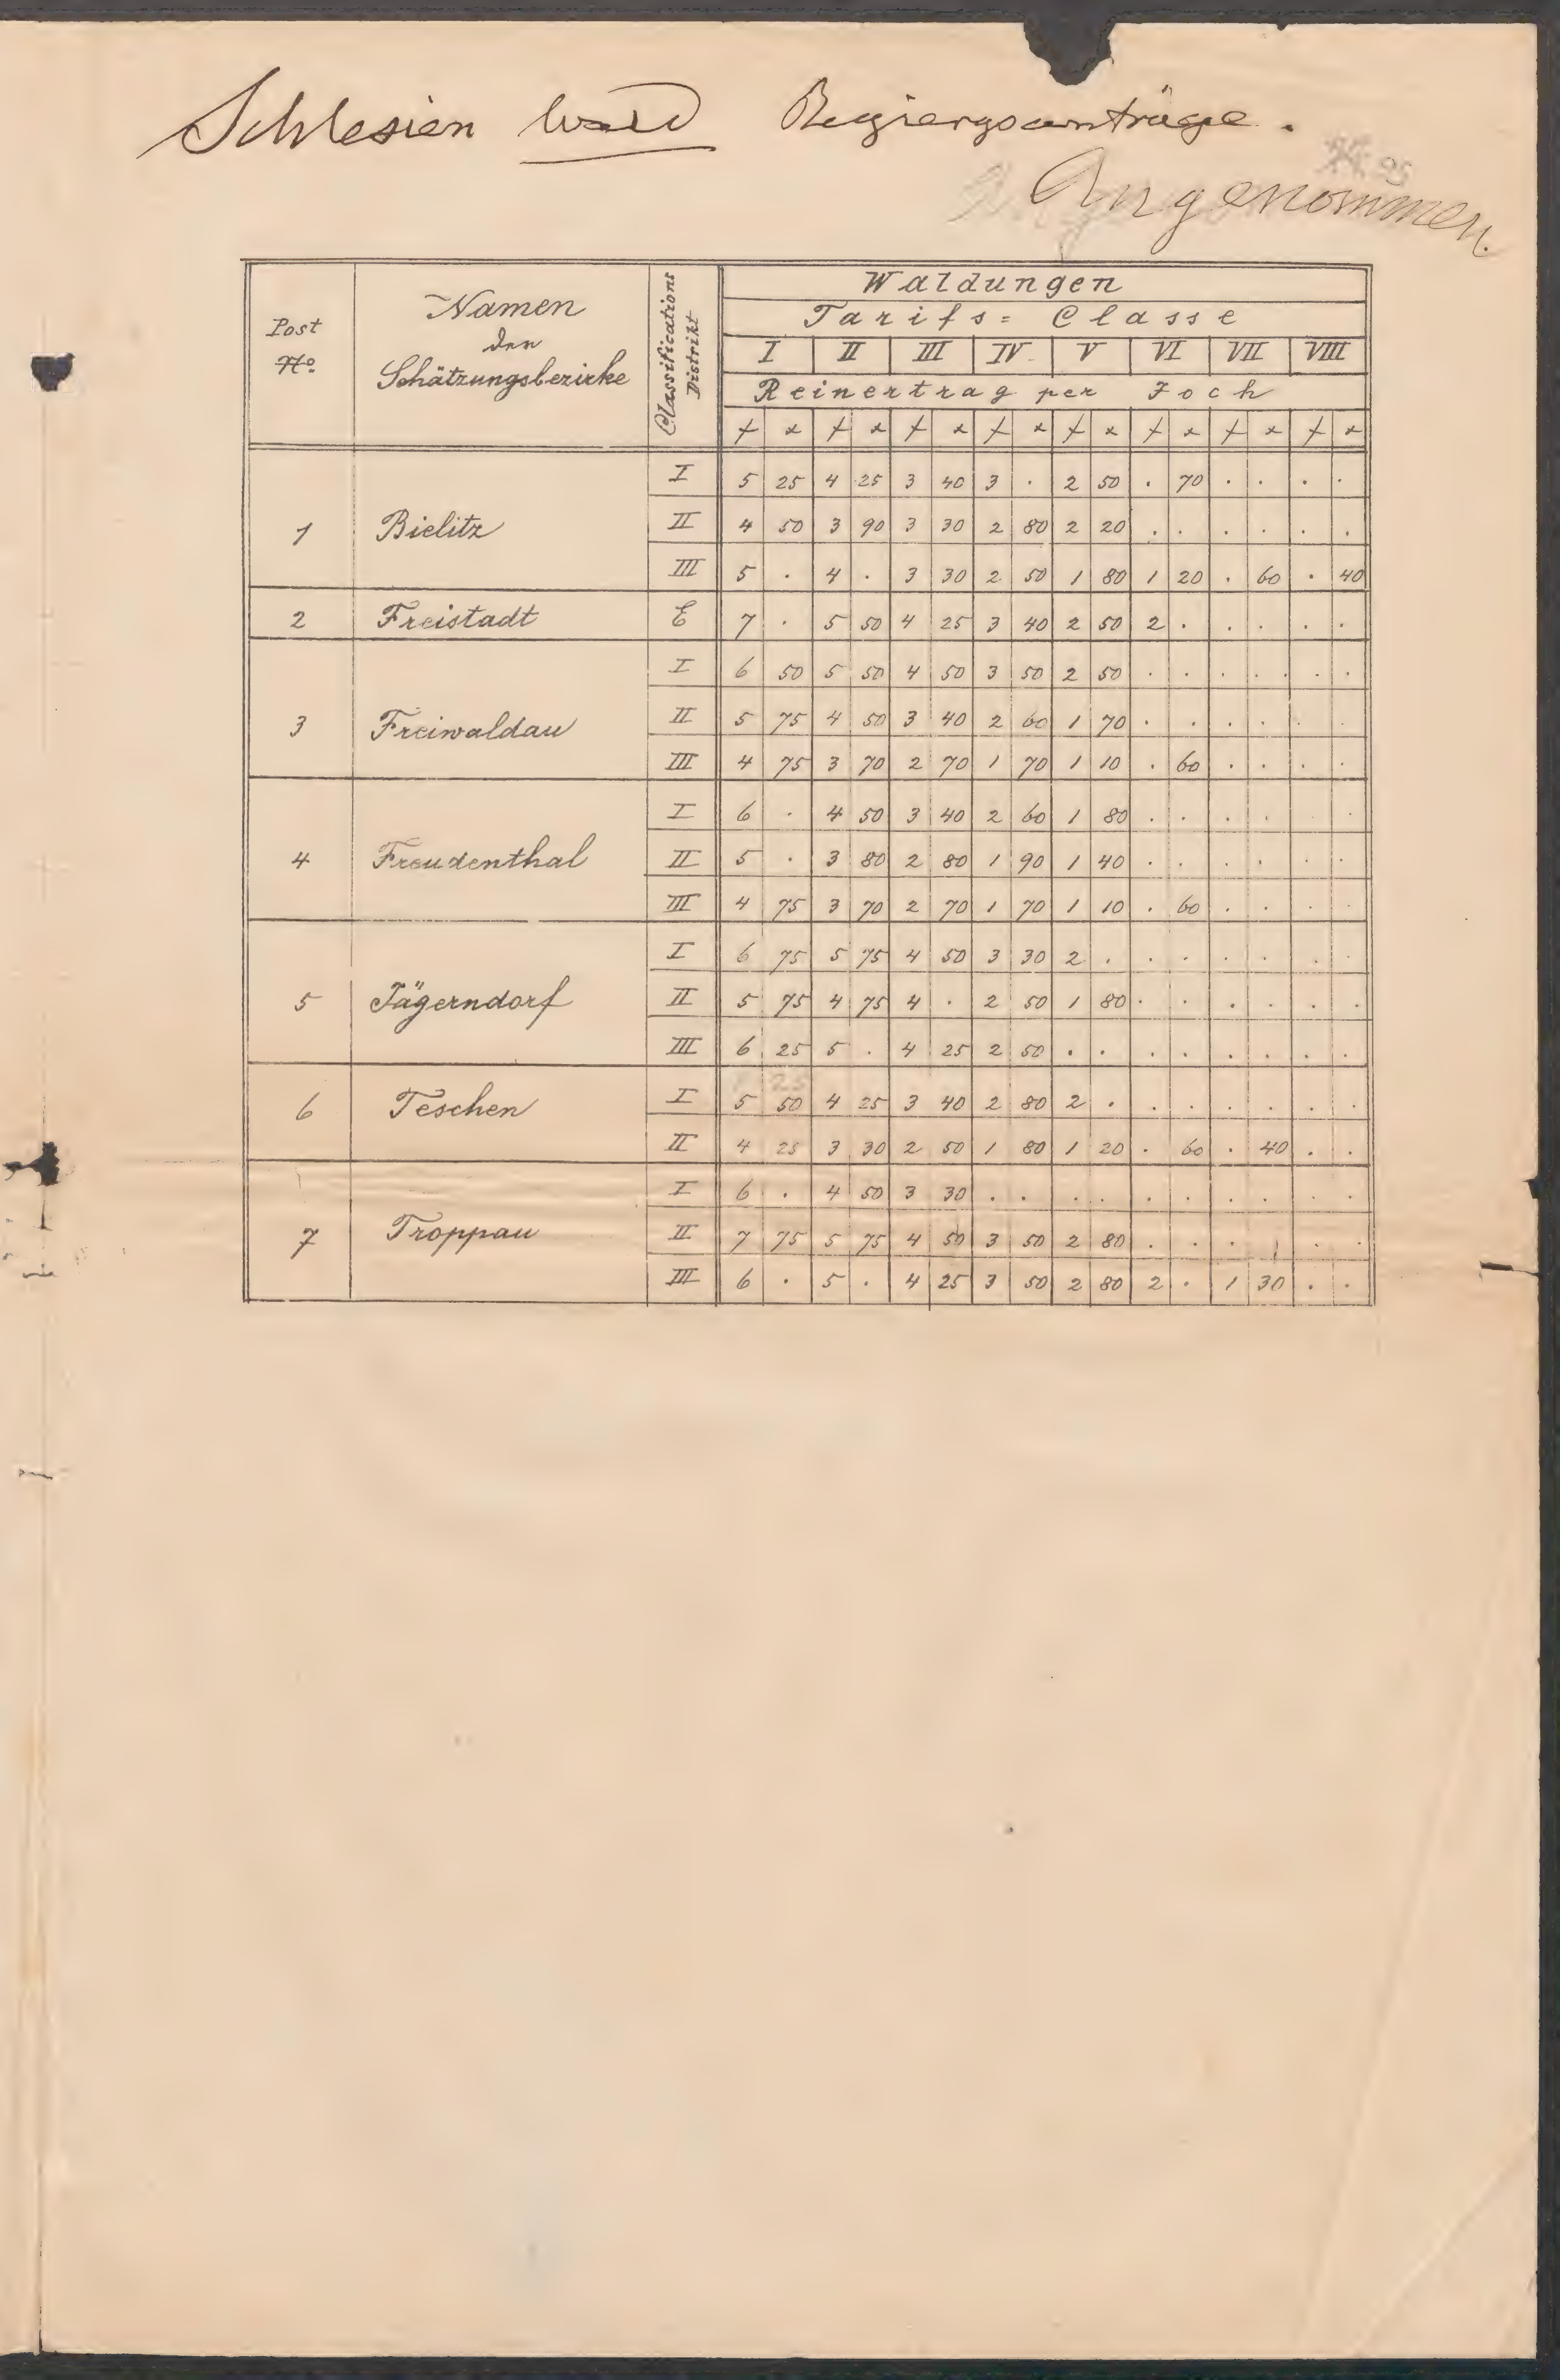 Schlesien Wald Regiergsanträge.
Angenommen.
Post No. | Namen der Schätzungsbezirke | Classifications Distrikt | Waldungen
Tarifs = Classe
I | II | III | IV | V | VI | VII | VIII
Reinertrag per Joch
f x | f x | f x | f x | f x | f x | f x | f x
1 Bielitz I 5 25 4 25 3 40 3 . 2 50 . 70 . . . .
II 4 50 3 90 3 30 2 80 2 20 . . . . . .
III 5 . 4 . 3 30 2 50 1 80 1 20 . 60 . 40
2 Freistadt E 7 . 5 50 4 25 3 40 2 50 2 . . . . .
3 Freiwaldau I 6 50 5 50 4 50 3 50 2 50 . . . . . .
II 5 75 4 50 3 40 2 60 1 70 . . . . . .
III 4 75 3 70 2 70 1 70 1 10 . 60 . . . .
4 Freudenthal I 6 . 4 50 3 40 2 60 1 80 . . . . . .
II 5 . 3 80 2 80 1 90 1 40 . . . . . .
III 4 75 3 70 2 70 1 70 1 10 . 60 . . . .
5 Jägerndorf I 6 75 5 75 4 50 3 30 2 . . . . . . .
II 5 75 4 75 4 . 2 50 1 80 . . . . . .
III 6 25 5 . 4 25 2 50 . . . . . . . .
6 Teschen I 5 50 4 25 3 40 2 80 2 . . . . . . .
II 4 25 3 30 2 50 1 80 1 20 . 60 . 40 . .
7 Troppau I 6 . 4 50 3 30 . . . . . . . . . .
II 7 75 5 75 4 50 3 50 2 80 . . . . . .
III 6 . 5 . 4 25 3 50 2 80 2 . 1 30 . .